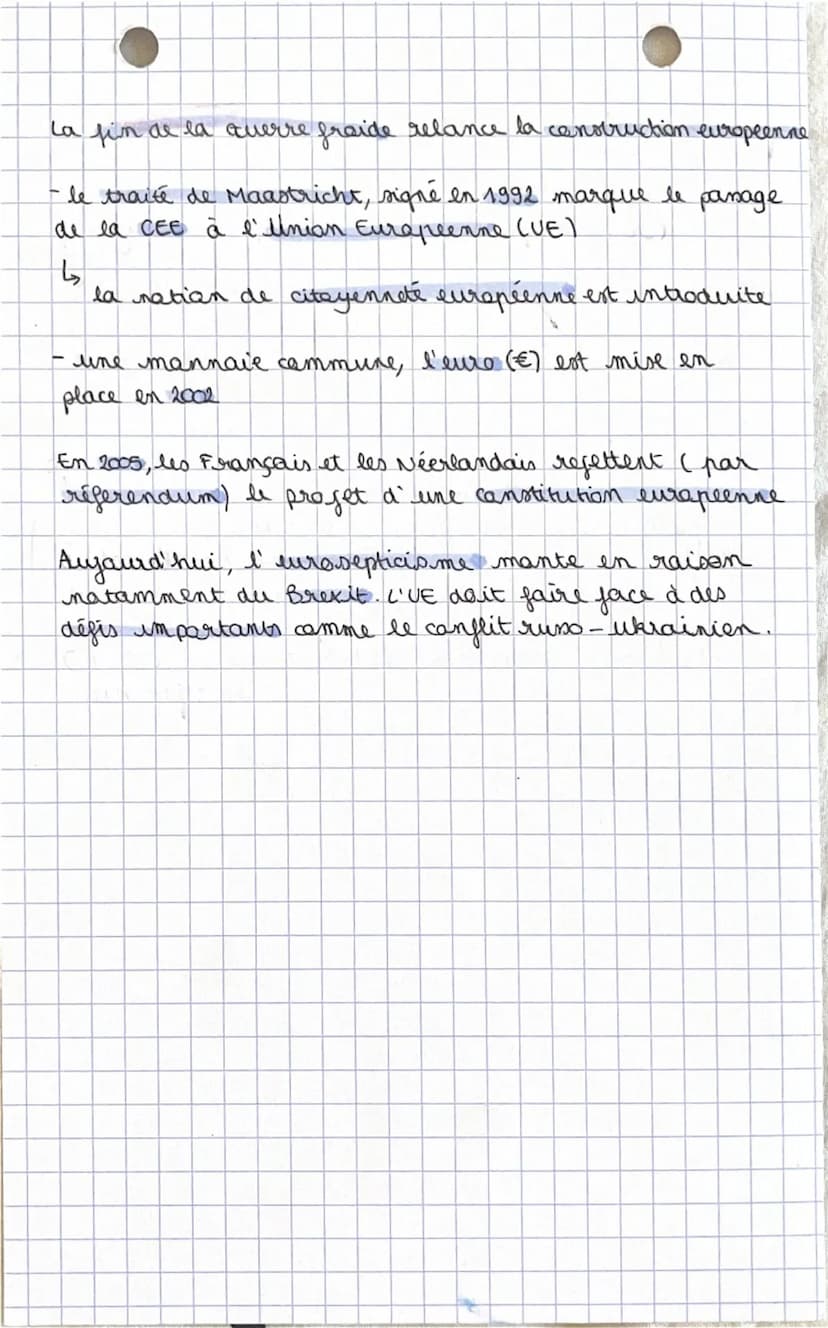 La fin de la Guerre froide relance la construction européenne
- le traité de Maastricht, signé en 1992 marque le passage
de la CEE à l'Union Européenne (UE)
↳
la notion de citoyenneté européenne est introduite
- une monnaie commune, l'euro (€) est mise en
place en 2002
En 2005, les Français et les Néerlandais rejettent (par
référendum) le projet d'une constitution européenne
Aujourd'hui, l'eurosepticisme monte en raison
notamment du Brexit. L'UE doit faire face à des
défis importants comme le conflit russo-ukrainien.